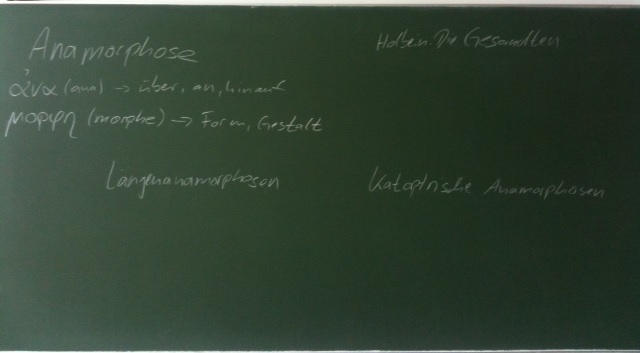 Anamorphose
Holbein: Die Gesandten
ἀνα (ana) → über, an, hinauf
μορφη (morphe) → Form, Gestalt
Längenanamorphosen
Katoptrische Anamorphosen